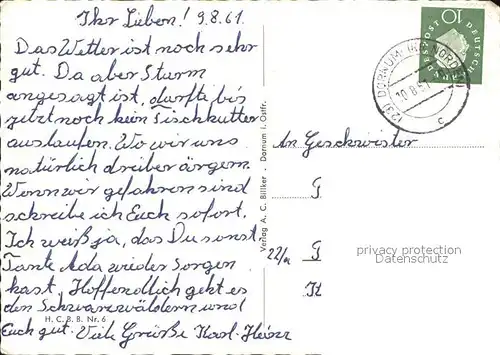 Ihr Lieben! 9.8.61.
Das Wetter ist noch sehr
gut. Da aber Sturm
angesagt ist, durfte bis
jetzt noch kein Fischkutter
auslaufen. Wo wir uns
natürlich drüber ärgern.
Wenn wir gefahren sind
schreibe ich Euch sofort.
Ich weiß ja, das Du sonst
Tante Ada wieder Sorgen
hast. Hoffendlich geht es
den Schwarzwäldern und
Euch gut. Viele Grüße Karl-Heinz
H. C. B. B. Nr. 6
Verlag A. C. Billker . Dornum i. Ostfr.
DEUTSCHE
BUNDESPOST
10
(23) DORNUM
10.8.61
c
An Geschwister
G
22/a G
K
privacy protection
Datenschutz